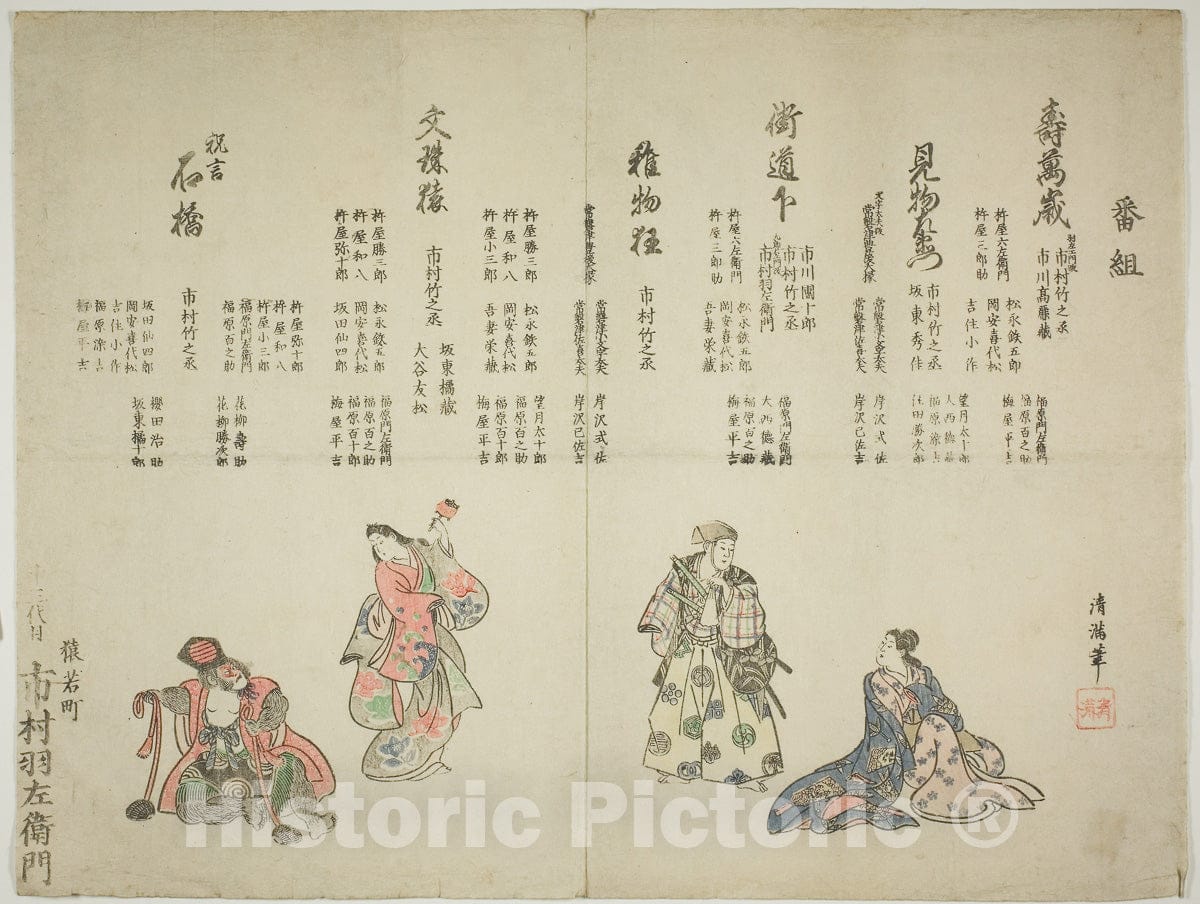 番組
壽萬歳
羽左衛門改
市村竹之丞
市川高麗蔵
杵屋六左衛門
杵屋三郎助
松永鉄五郎
岡安喜代松
吉住小作
福原門左衛門
福原百之助
梅屋平吉
見物左衛門
市村竹之丞
坂東秀作
望月太十郎
常磐津小文字太夫
常磐津佐喜太夫
岸沢式佐
岸沢巳佐吉
街道下
市川團十郎
市村竹之丞
市村羽左衛門
杵屋六左衛門
杵屋三郎助
松永鉄五郎
岡安喜代松
吾妻栄蔵
福原門左衛門
大西徳蔵
福原百之助
梅屋平吉
種物狂
市村竹之丞
常磐津小文字太夫
常磐津佐喜太夫
岸沢式佐
岸沢巳佐吉
杵屋勝三郎
杵屋和八
杵屋小三郎
松永鉄五郎
岡安喜代松
吾妻栄蔵
望月太十郎
福原百之助
福原百十郎
梅屋平吉
文珠猿
市村竹之丞
坂東橘蔵
大谷友松
杵屋勝三郎
杵屋和八
杵屋弥十郎
松永鉄五郎
岡安喜代松
坂田仙四郎
福原門左衛門
福原百之助
福原百十郎
梅屋平吉
祝言
石橋
市村竹之丞
杵屋弥十郎
杵屋和八
杵屋小三郎
福原門左衛門
福原百之助
花柳壽助
花柳勝次郎
坂田仙四郎
岡安喜代松
吉住小作
福原
梅屋平吉
櫻田治助
坂東橘十郎
清満筆
清満
十三代目
猿若町
市村羽左衛門
Historic Pictoric ®